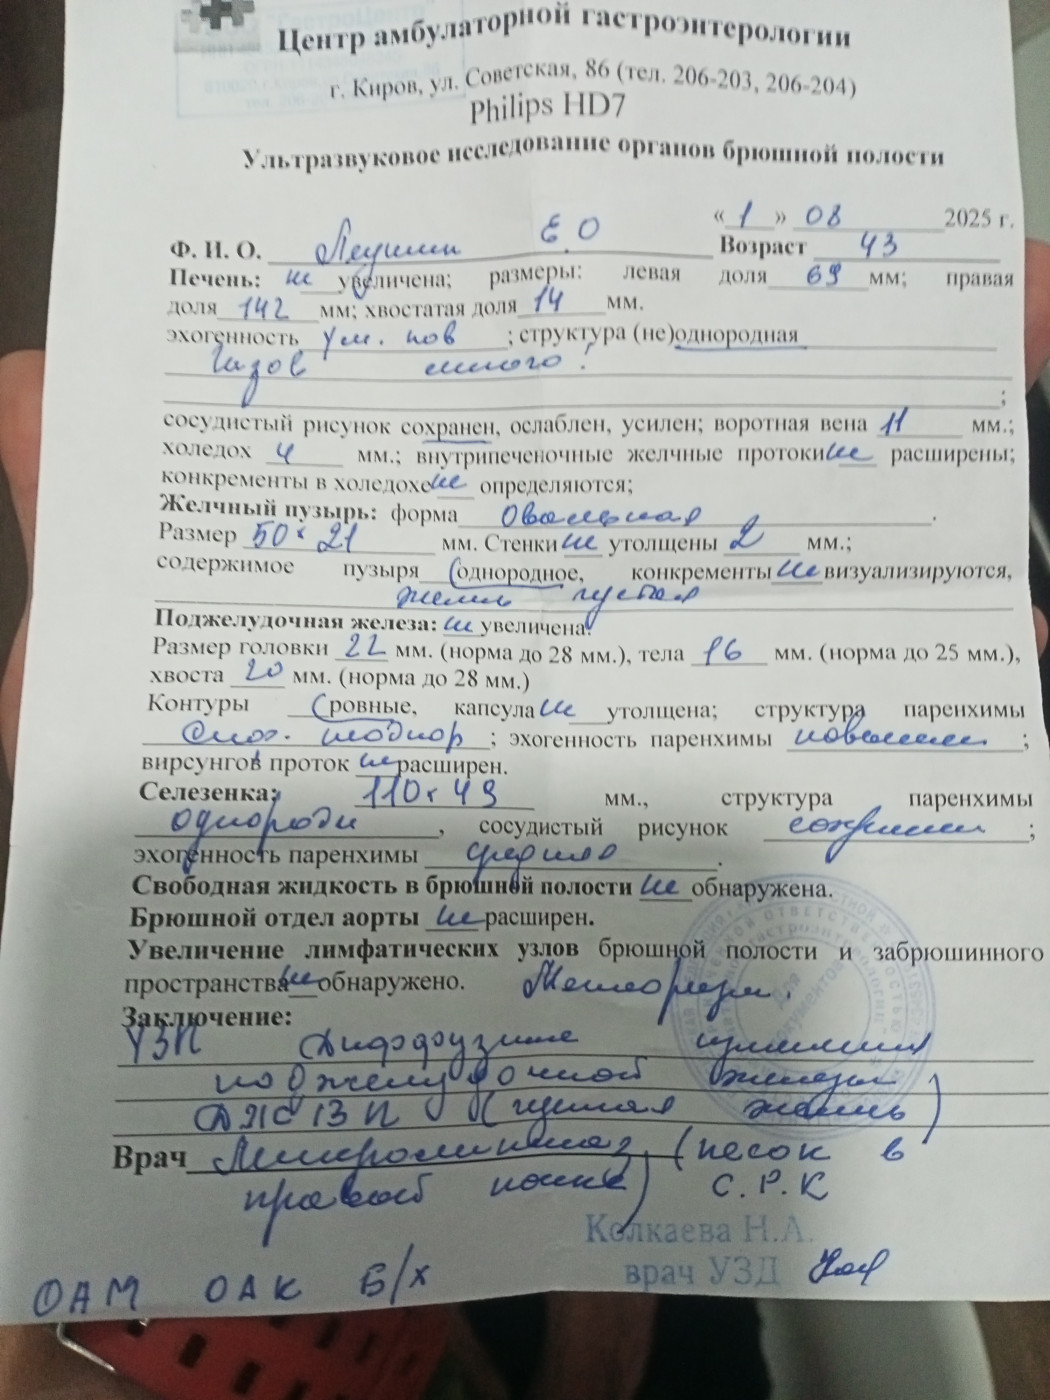 Центр амбулаторной гастроэнтерологии
г. Киров, ул. Советская, 86 (тел. 206-203, 206-204)
Philips HD7
Ультразвуковое исследование органов брюшной полости
« 1 » 08 2025 г.
Ф. И. О. Е О Возраст 43
Печень: не увеличена; размеры: левая доля 69 мм; правая
доля 142 мм; хвостатая доля 14 мм.
эхогенность ум. пов ; структура (не)однородная
Газов много!
;
сосудистый рисунок сохранен, ослаблен, усилен; воротная вена 11 мм.;
холедох 4 мм.; внутрипеченочные желчные протоки не расширены;
конкременты в холедохе не определяются;
Желчный пузырь: форма Овальная .
Размер 50 х 21 мм. Стенки не утолщены 2 мм.;
содержимое пузыря однородное, конкременты не визуализируются,
желчь густая
Поджелудочная железа: не увеличена.
Размер головки 22 мм. (норма до 28 мм.), тела 16 мм. (норма до 25 мм.),
хвоста 20 мм. (норма до 28 мм.)
Контуры ровные, капсула не утолщена; структура паренхимы
; эхогенность паренхимы повышен ;
вирсунгов проток не расширен.
Селезенка: 110 х 49 мм., структура паренхимы
однородн , сосудистый рисунок сохранен ;
эхогенность паренхимы средняя .
Свободная жидкость в брюшной полости не обнаружена.
Брюшной отдел аорты не расширен.
Увеличение лимфатических узлов брюшной полости и забрюшинного
пространства не обнаружено. Метеоризм.
Заключение:
УЗП Диффузные изменения
поджелудочной железы
ДЖВП (густая желчь)
Врач Микролитиаз (песок в
правой почке) С.Р.К
Колкаева Н.А.
врач УЗД
ОАМ ОАК Б/х